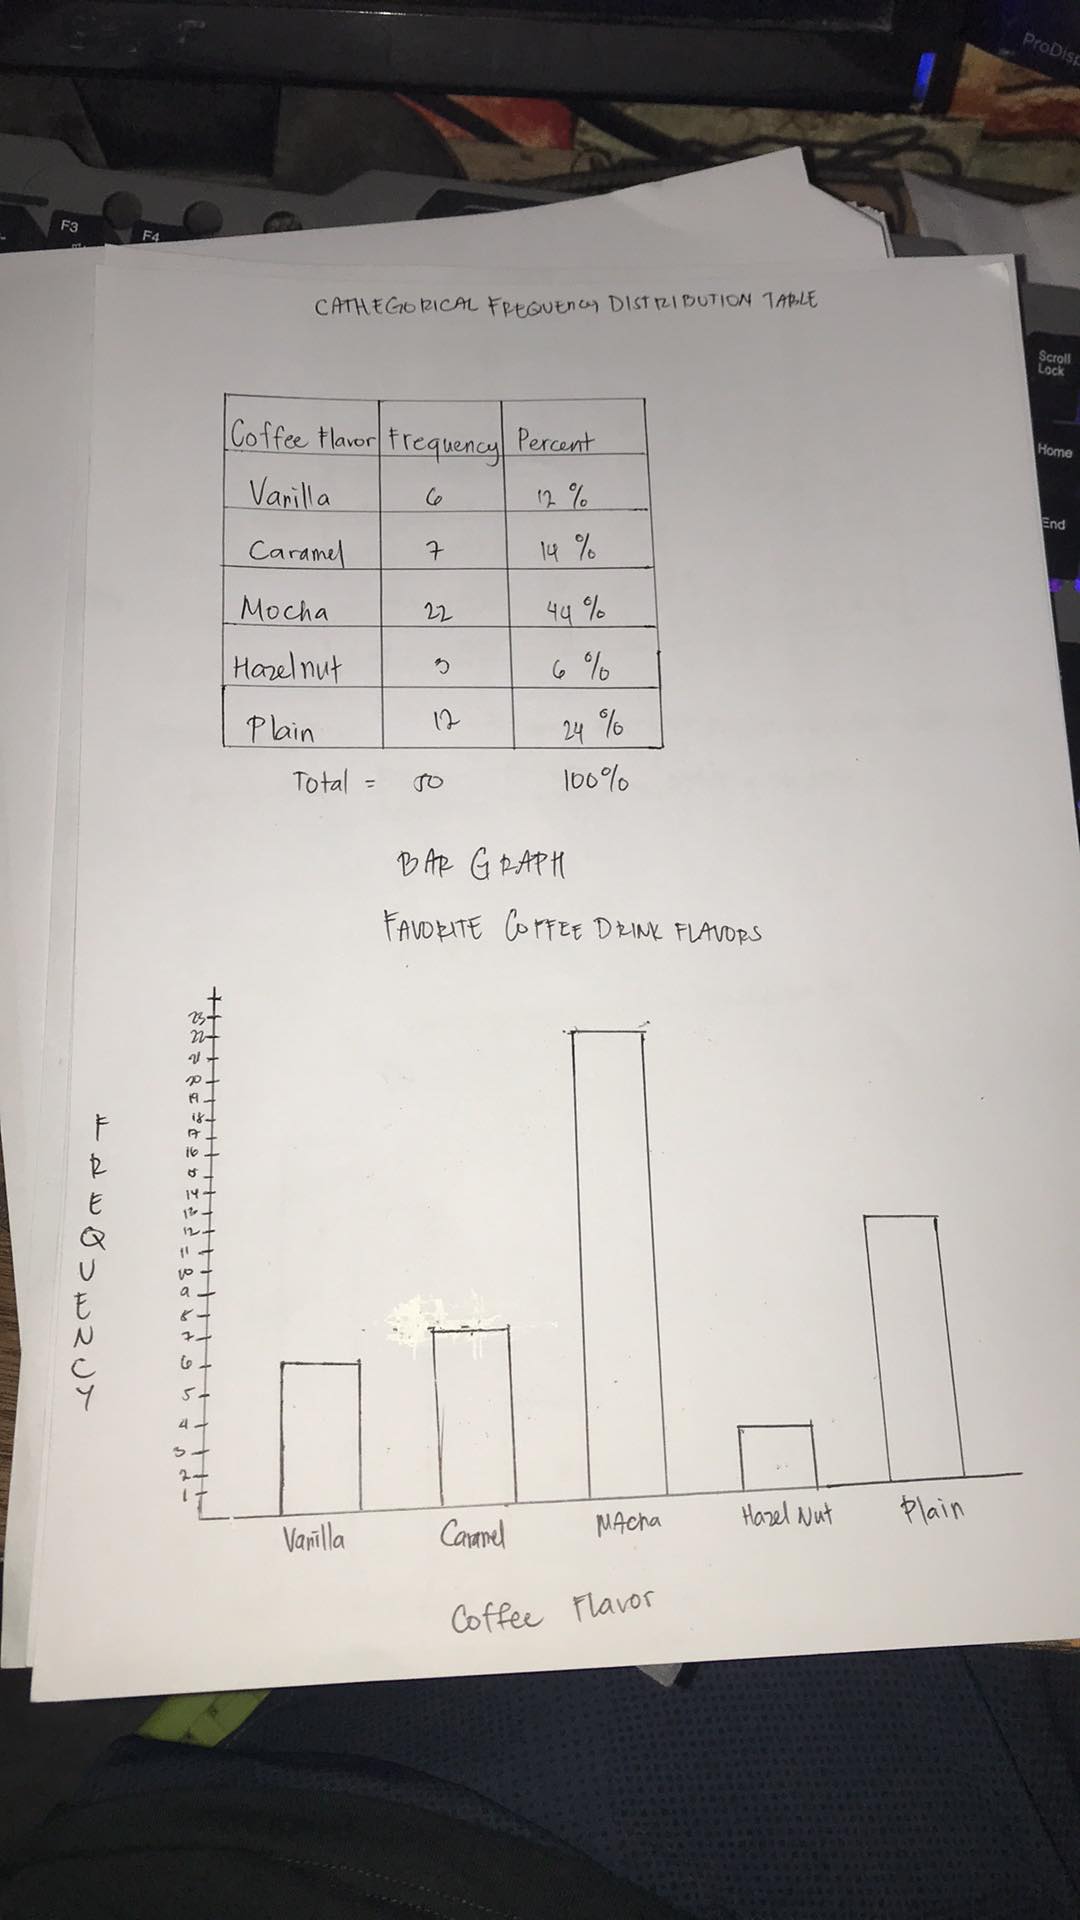 ProDisp
F3
F4
Scroll
Lock
Home
End
CATHEGORICAL FREQUENCY DISTRIBUTION TABLE
Coffee Flavor Frequency Percent
Vanilla 6 12 %
Caramel 7 14 %
Mocha 22 44 %
Hazelnut 3 6 %
Plain 12 24 %
Total = 50 100%
BAR GRAPH
FAVORITE COFFEE DRINK FLAVORS
23
22
21
20
19
18
17
16
15
14
13
12
11
10
9
8
7
6
5
4
3
2
1
FREQUENCY
Vanilla Caramel MAcha Hazel Nut Plain
Coffee Flavor